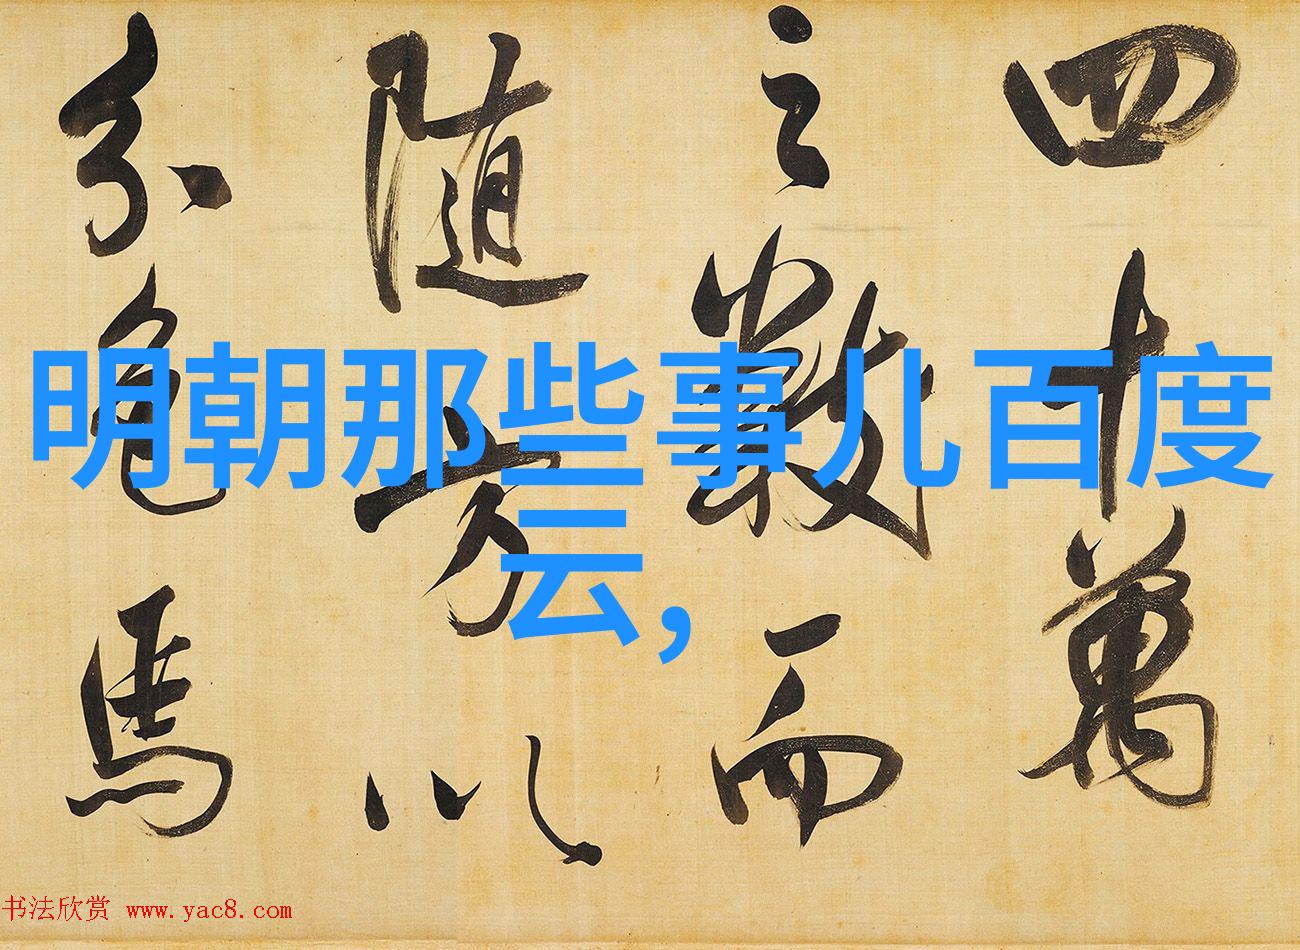 四十萬
之數而
随方以
分色馬
明朝那些事儿百度
云,
书法欣赏 www.yac8.com